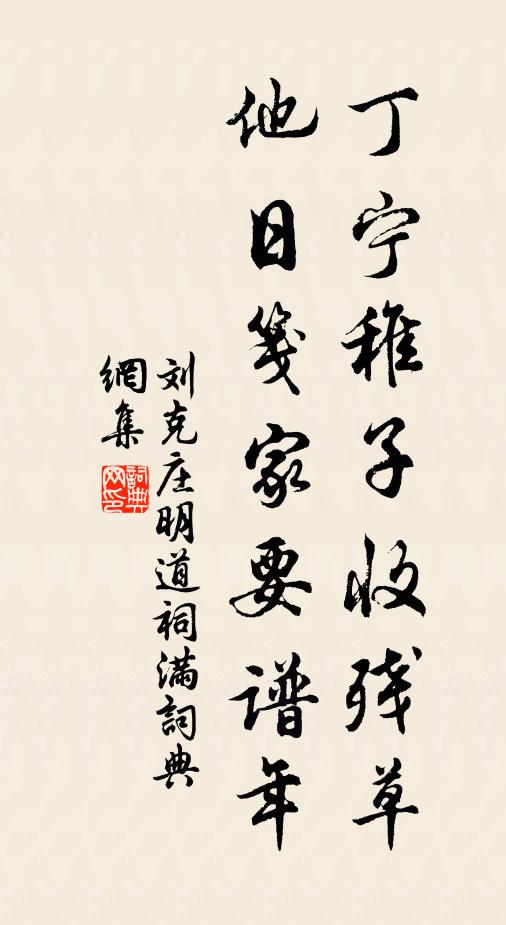 丁宁稚子收残草
他日笺家要谱年
刘克庄明道祠满詞典
網集
詞典网印